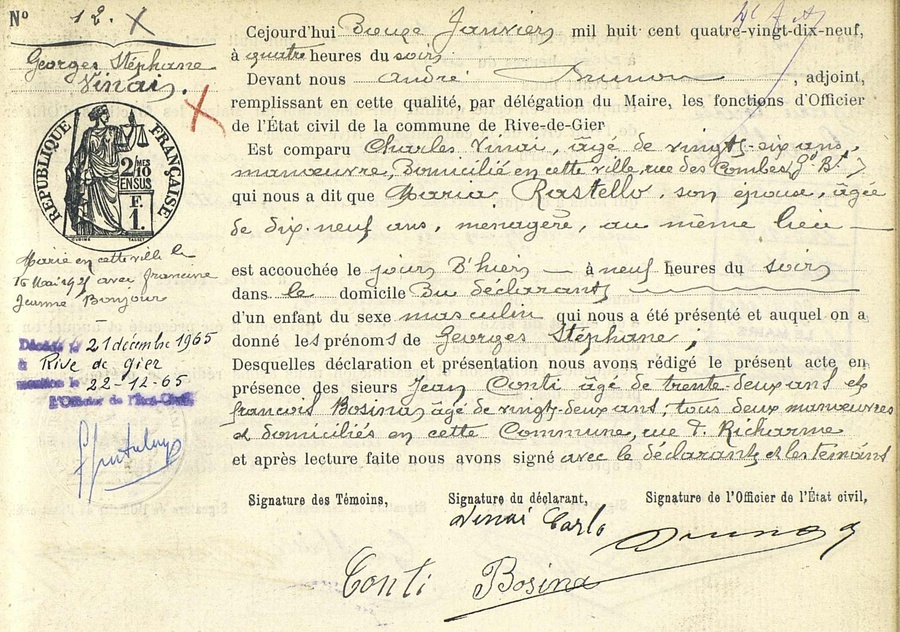 N° 12.
Georges Stéphane
Vinai.
RÉPUBLIQUE FRANÇAISE
2/10 MES
EN SUS
F.
1.
Marié en cette ville le
16 Mai 1925 avec Francine
Jeanne Bonjour
Décédé le 21 décembre 1965
à Rive de Gier
mention le 22-12-65
L'Officier de l'Etat-Civil,
Cejourd'hui Douze Janvier mil huit cent quatre-vingt-dix-neuf,
à quatre heures du soir
Devant nous André Brunon, adjoint,
remplissant en cette qualité, par délégation du Maire, les fonctions d'Officier
de l'État civil de la commune de Rive-de-Gier
Est comparu Charles Vinai, âgé de vingt-six ans,
manœuvre, domicilié en cette ville, rue des Combes
qui nous a dit que Maria Rastello, son épouse, âgée
de dix-neuf ans, menagère, au même lieu
est accouchée le jour d'hier à neuf heures du soir
dans le domicile du déclarant
d'un enfant du sexe masculin qui nous a été présenté et auquel on a
donné les prénoms de Georges Stéphane;
Desquelles déclaration et présentation nous avons rédigé le présent acte en
présence des sieurs Jean Conti âgé de trente-deux ans et
françois Bosina, âgé de vingt-deux ans, tous deux manœuvres
et domiciliés en cette Commune, rue P. Richarme
et après lecture faite nous avons signé avec le déclarant et les témoins
Signature des Témoins, Signature du déclarant, Signature de l'Officier de l'État civil,
Vinai Carlo Brunon
Conti Bosina